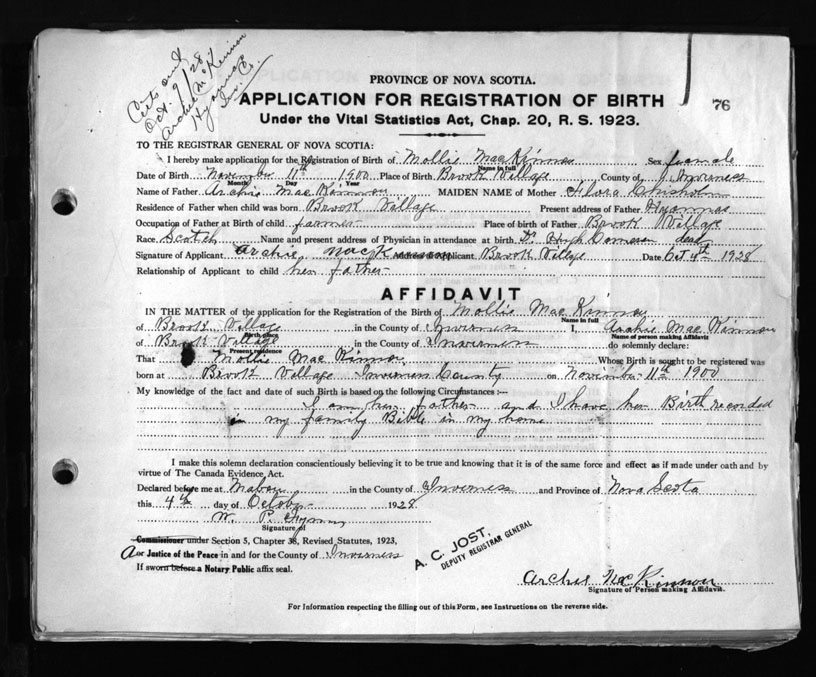 Certs and
Oct. 9/28
Archie McKinnon
Inv. C.
PROVINCE OF NOVA SCOTIA.
APPLICATION FOR REGISTRATION OF BIRTH
76
Under the Vital Statistics Act, Chap. 20, R. S. 1923.
TO THE REGISTRAR GENERAL OF NOVA SCOTIA:
I hereby make application for the Registration of Birth of Mollie MacKinnon Sex female
Name in full
Date of Birth November 11th 1900 Place of Birth Brook Village County of Inverness
Month Day Year
Name of Father Archie MacKinnon MAIDEN NAME of Mother Flora Chisholm
Residence of Father when child was born Brook Village Present address of Father
Occupation of Father at Birth of child farmer Place of birth of Father Brook Village
Race Scotch Name and present address of Physician in attendance at birth. Dr Hugh Cameron dead
Signature of Applicant Archie MacKinnon Address of Applicant Brook Village Date Oct 4th 1928
Relationship of Applicant to child her father
AFFIDAVIT
IN THE MATTER of the application for the Registration of the Birth of Mollie MacKinnon
Name in full
of Brook Village in the County of Inverness I, Archie MacKinnon
Birth place Name of person making Affidavit
of Brook Village in the County of Inverness do solemnly declare:
Present residence
That Mollie MacKinnon Whose Birth is sought to be registered was
born at Brook Village Inverness County on November 11th 1900
My knowledge of the fact and date of such Birth is based on the following Circumstances :—
I am her father and I have her Birth recorded
in my family Bible in my home
I make this solemn declaration conscientiously believing it to be true and knowing that it is of the same force and effect as if made under oath and by
virtue of The Canada Evidence Act.
Declared before me at Mabou in the County of Inverness and Province of Nova Scotia
this 4th day of October 1928
W. P.
Signature of
Commissioner under Section 5, Chapter 38, Revised Statutes, 1923,
A or Justice of the Peace in and for the County of Inverness
If sworn before a Notary Public affix seal.
A. C. JOST,
DEPUTY REGISTRAR GENERAL
Archie MacKinnon
Signature of Person making Affidavit.
For Information respecting the filling out of this Form, see Instructions on the reverse side.